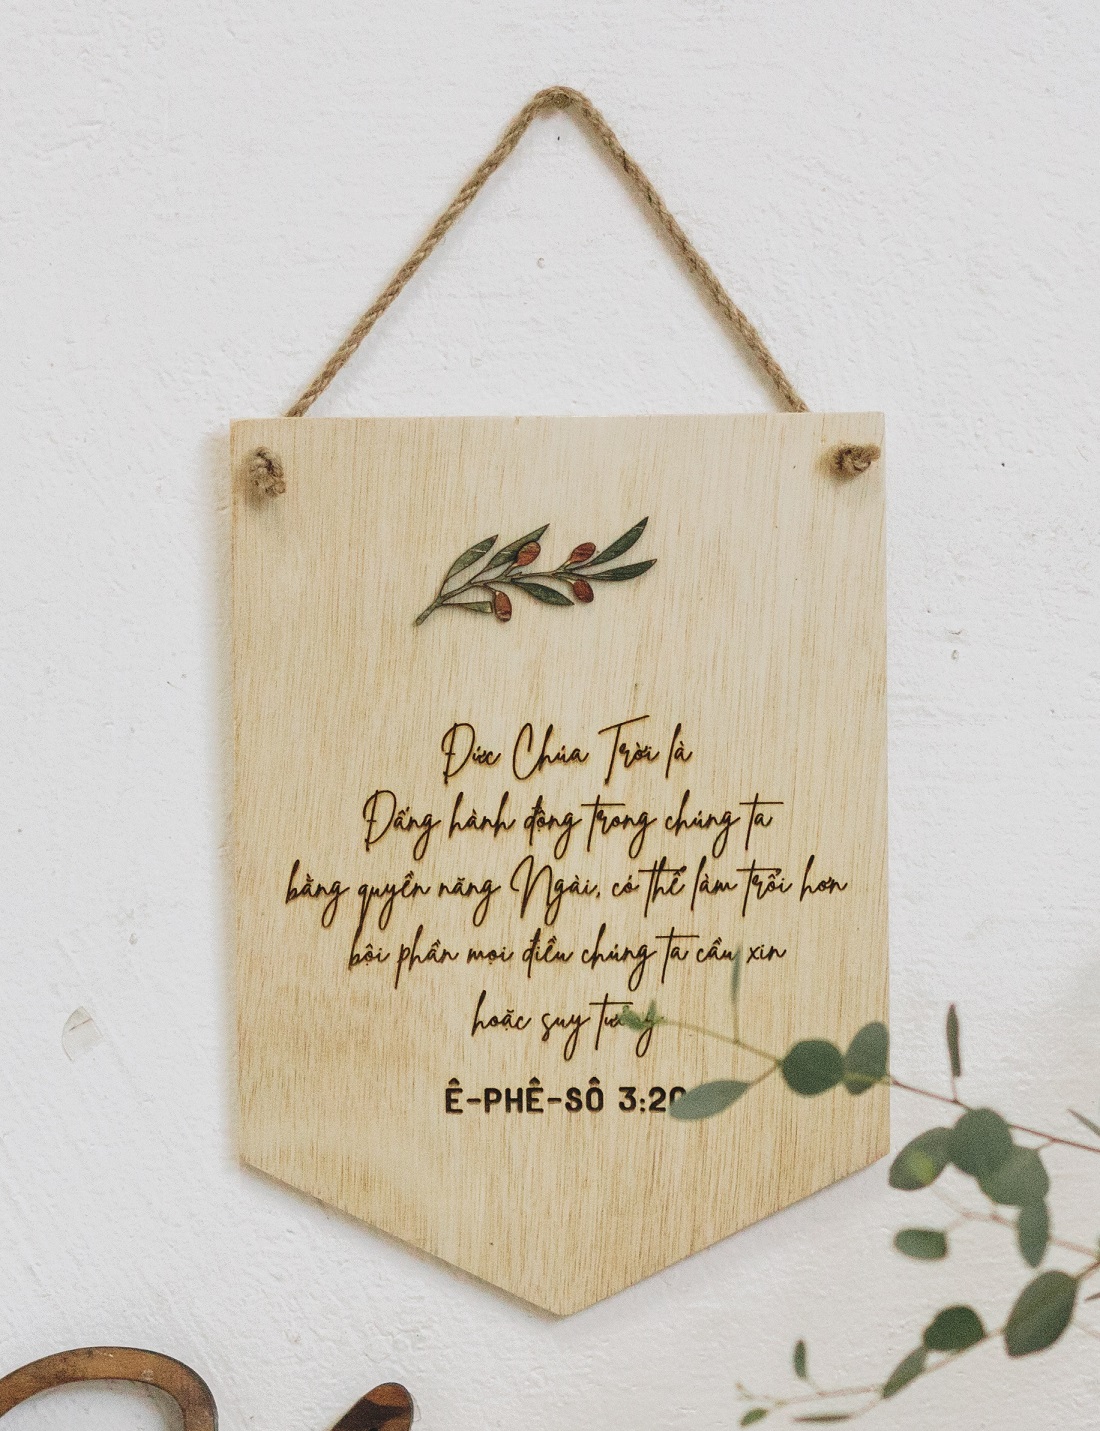 Đức Chúa Trời là
Đấng hành động trong chúng ta
bằng quyền năng Ngài, có thể làm trổi hơn
bội phần mọi điều chúng ta cầu xin
hoặc suy tưởng
Ê-PHÊ-SÔ 3:20